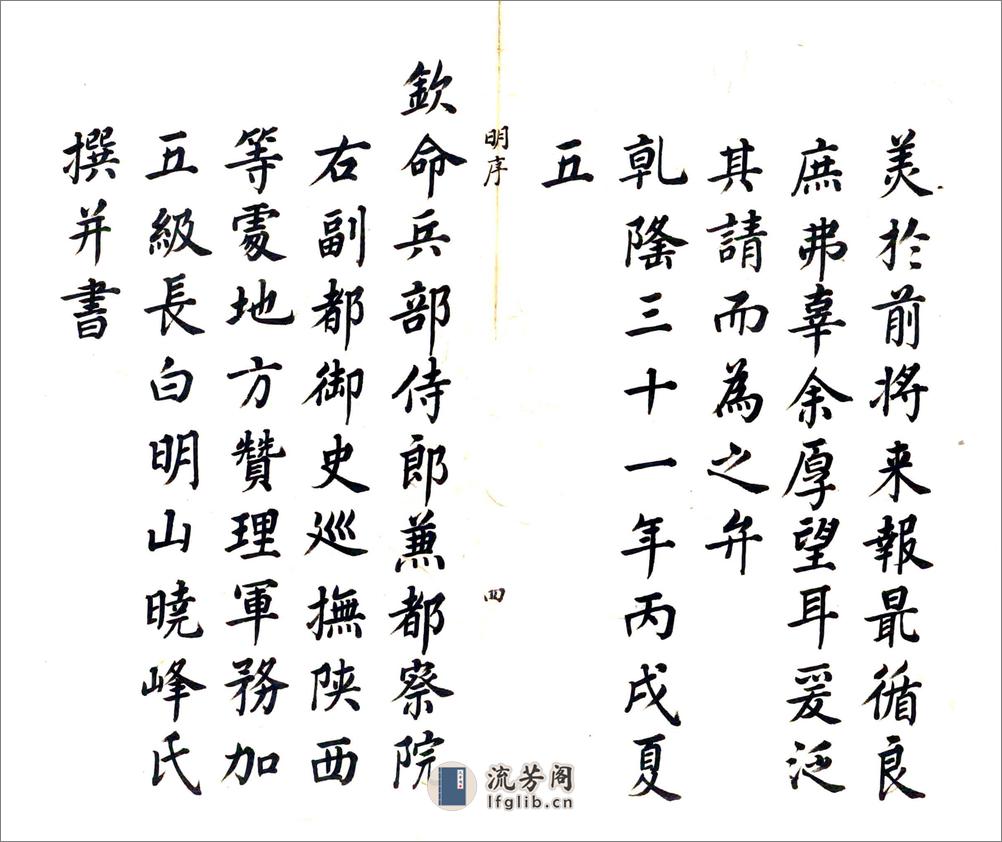 美於前將来報最循良
庶弗辜余厚望耳爰泛
其請而為之弁
乾隆三十一年丙戌夏
五
明序
四
欽命兵部侍郎兼都察院
右副都御史巡撫陝西
等處地方贊理軍務加
五級長白明山曉峰氏
撰并書
流芳阁
lfglib.cn